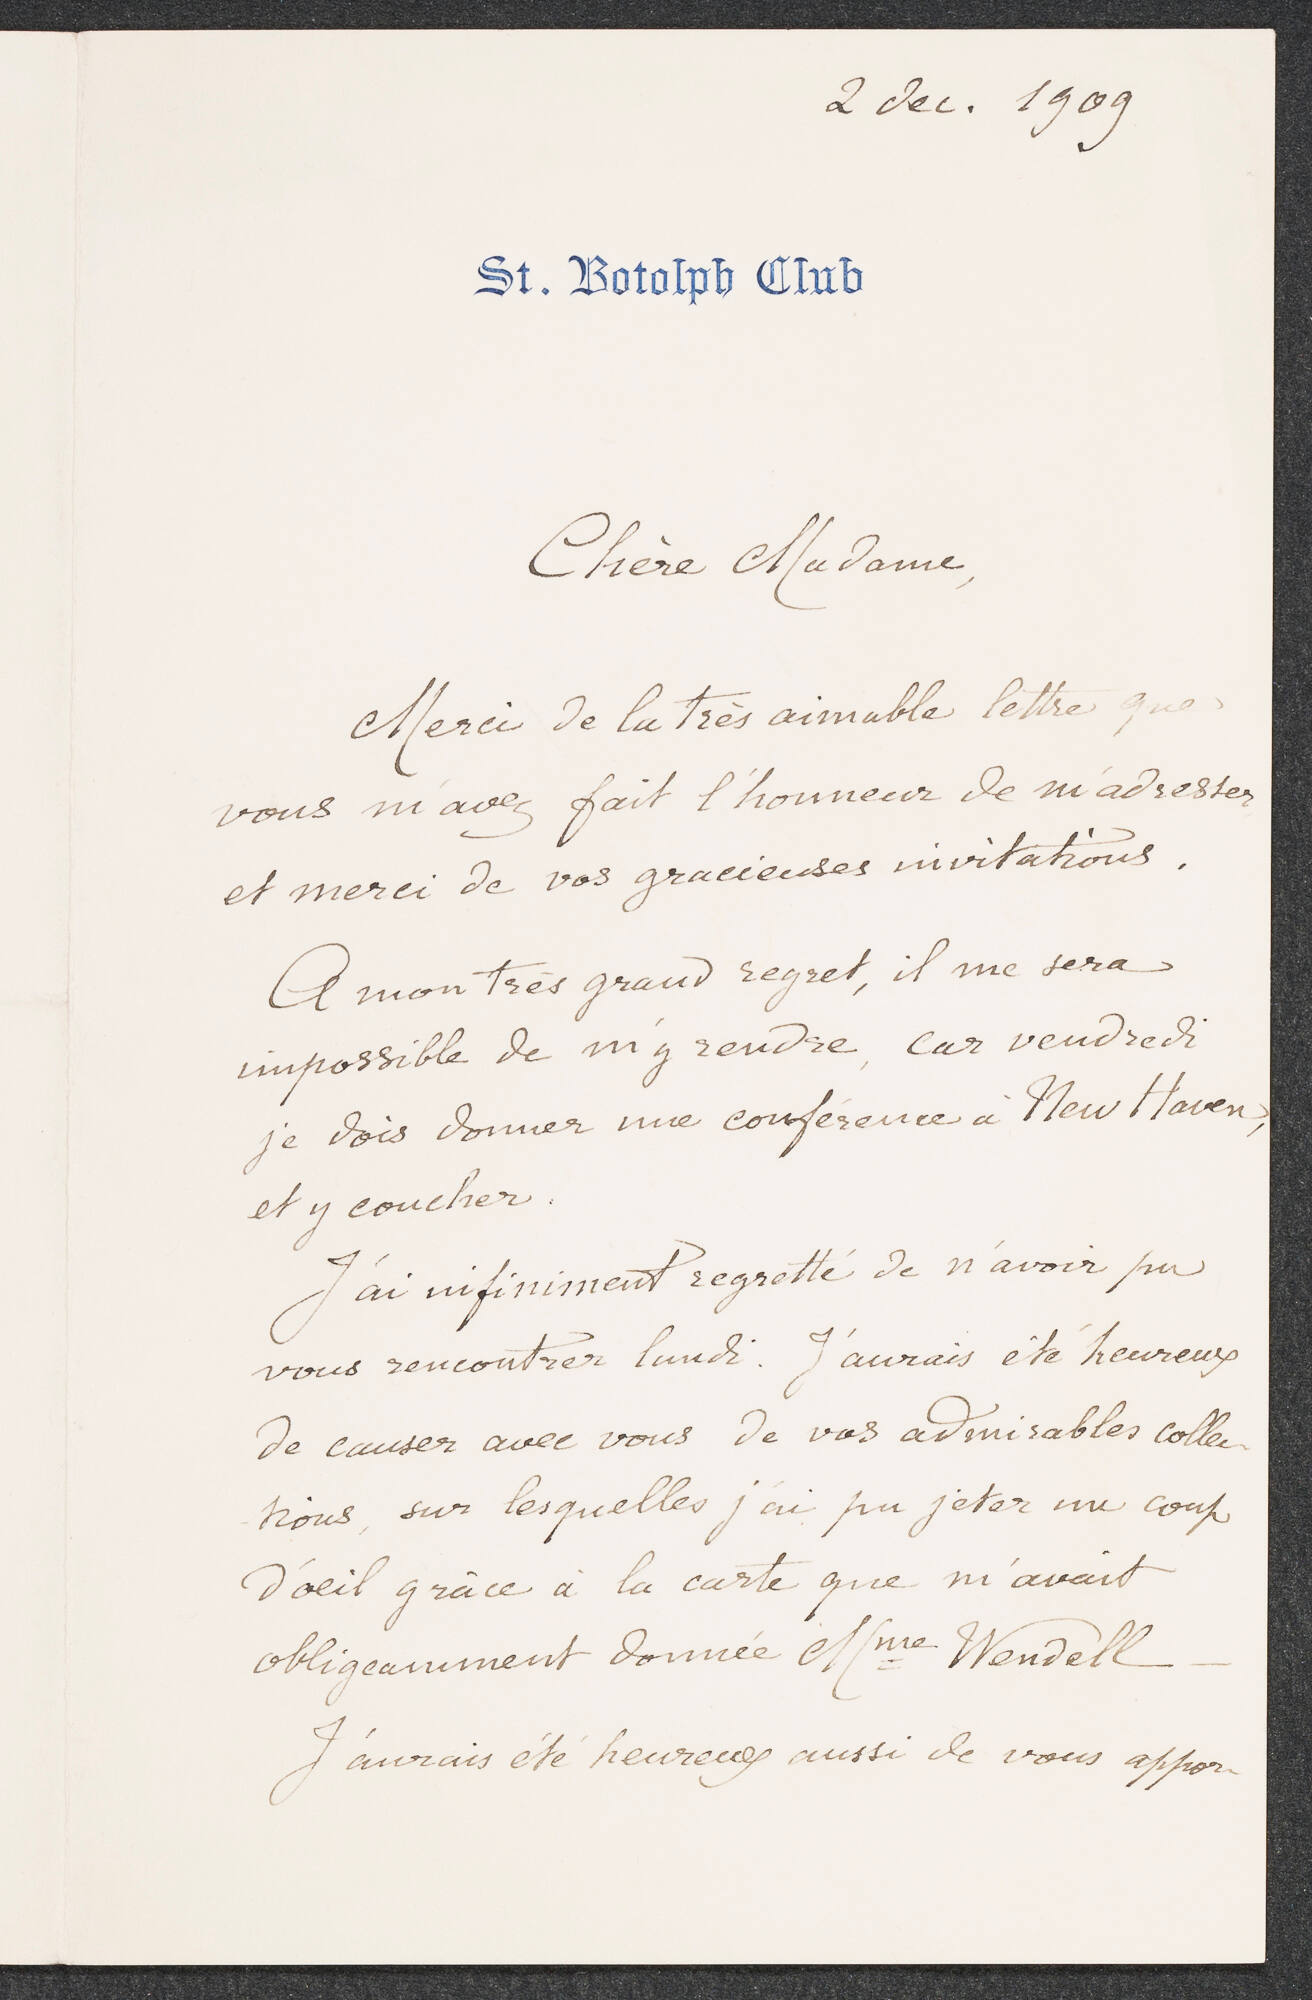 2 dec. 1909
St. Botolph Club
Chère Madame,
Merci de la très aimable lettre que
vous m'avez fait l'honneur de m'adresser
et merci de vos gracieuses invitations.
A mon très grand regret, il me sera
impossible de m'y rendre, car vendredi
je dois donner une conférence à New Haven,
et y coucher.
J'ai infiniment regretté de n'avoir pu
vous rencontrer lundi. J'aurais été heureux
de causer avec vous de vos admirables collec-
tions, sur lesquelles j'ai pu jeter un coup
d'oeil grâce à la carte que m'avait
obligeamment donnée Mme Wendell —
J'aurais été heureux aussi de vous appor-